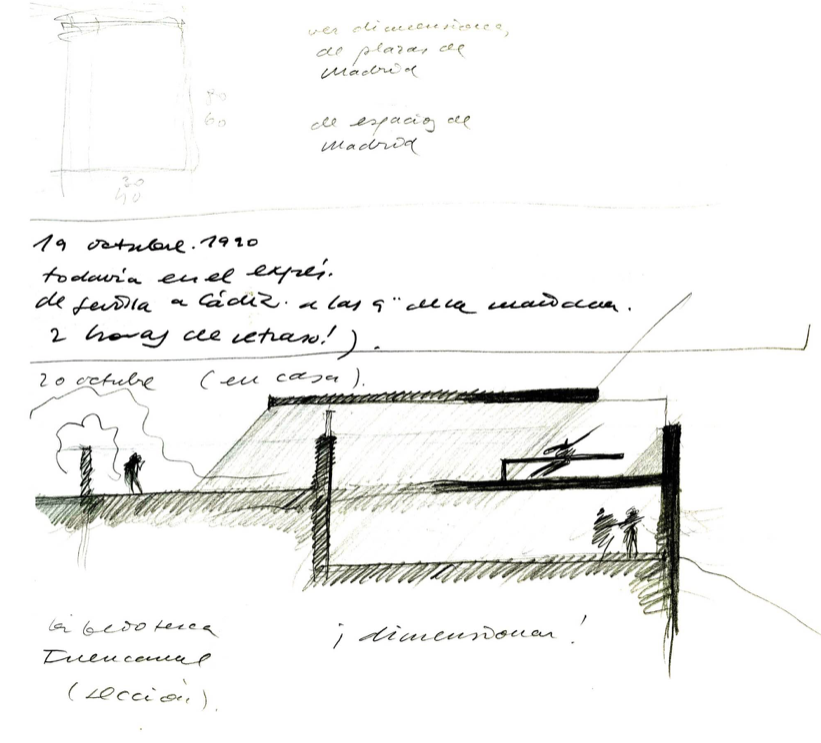 ver dimensiones,
de plazas de
Madrid
80
60
de espacios de
Madrid
30
40
19 octubre. 1990
todavía en el exprés.
de Sevilla a Cádiz. a las 9'' de la mañana.
2 horas de retraso! ).
20 octubre (en casa).
biblioteca
¡ dimensionar !
(sección).